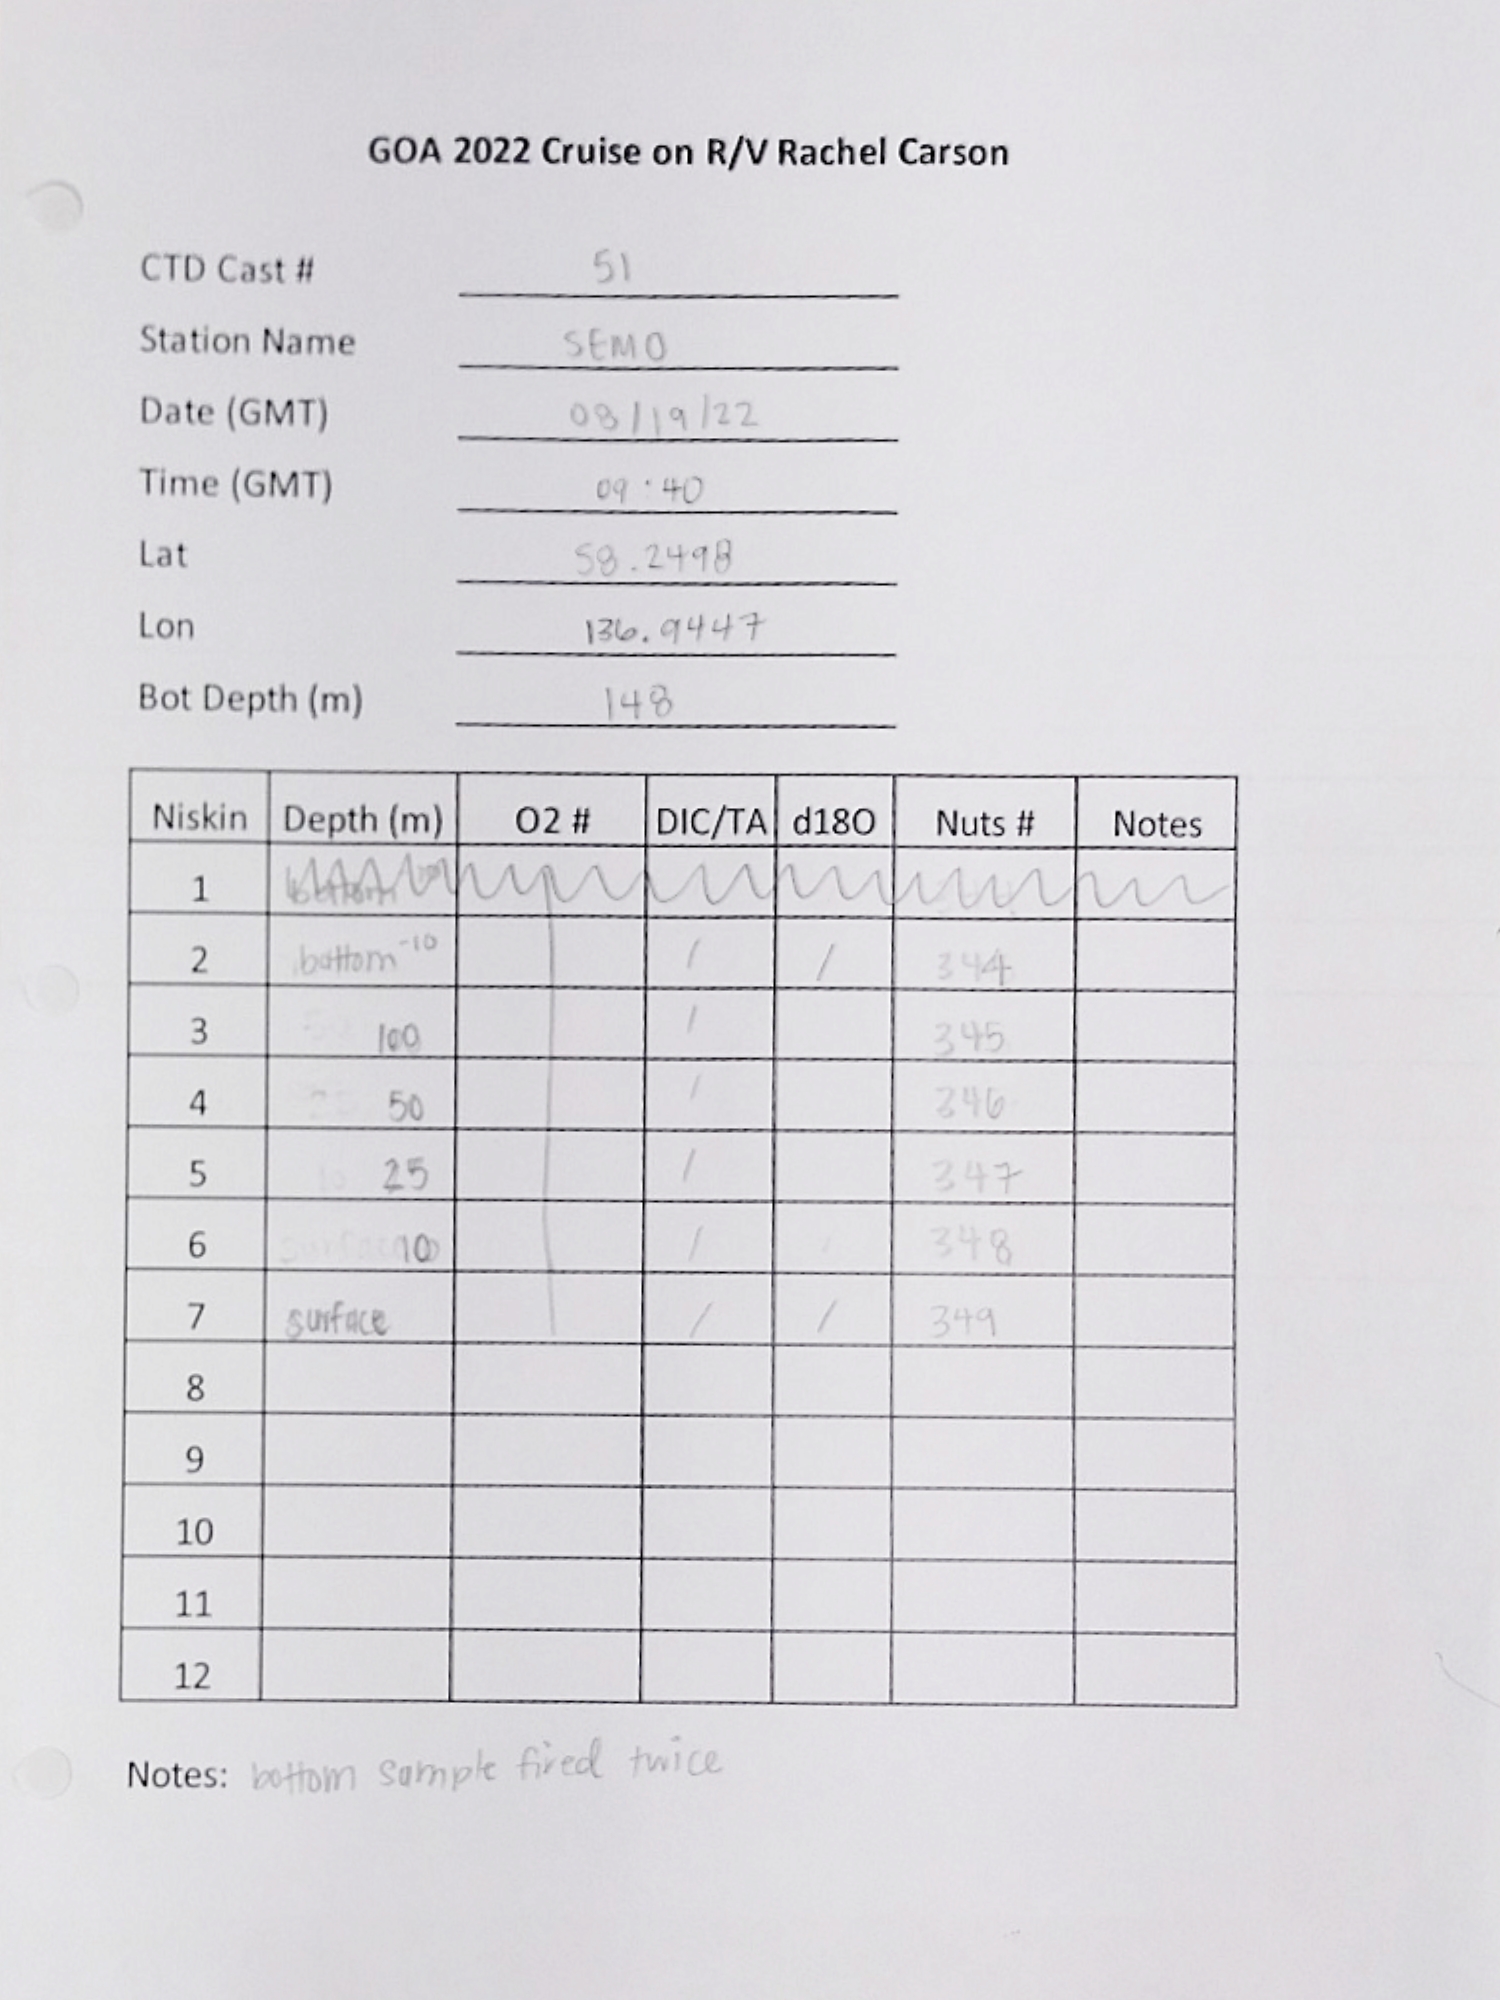 GOA 2022 Cruise on R/V Rachel Carson
CTD Cast # 51
Station Name SEMO
Date (GMT) 08/19/22
Time (GMT) 09:40
Lat 58.2498
Lon 136.9447
Bot Depth (m) 148
Niskin Depth (m) O2 # DIC/TA d18O Nuts # Notes
1 bottom
2 bottom -10 / / 344
3 100 / 345
4 50 / 346
5 25 / 347
6 10 / 348
7 surface / / 349
8
9
10
11
12
Notes: bottom sample fired twice